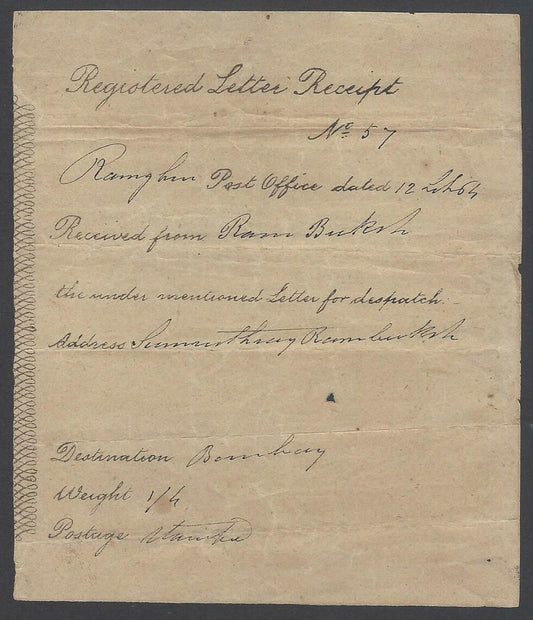 Registered Letter Receipt
No. 57
Post Office dated 12
Received from Ram Buksh
the under mentioned Letter for despatch.
Address Rambuksh
Destination Bombay
Weight 1/4
Postage